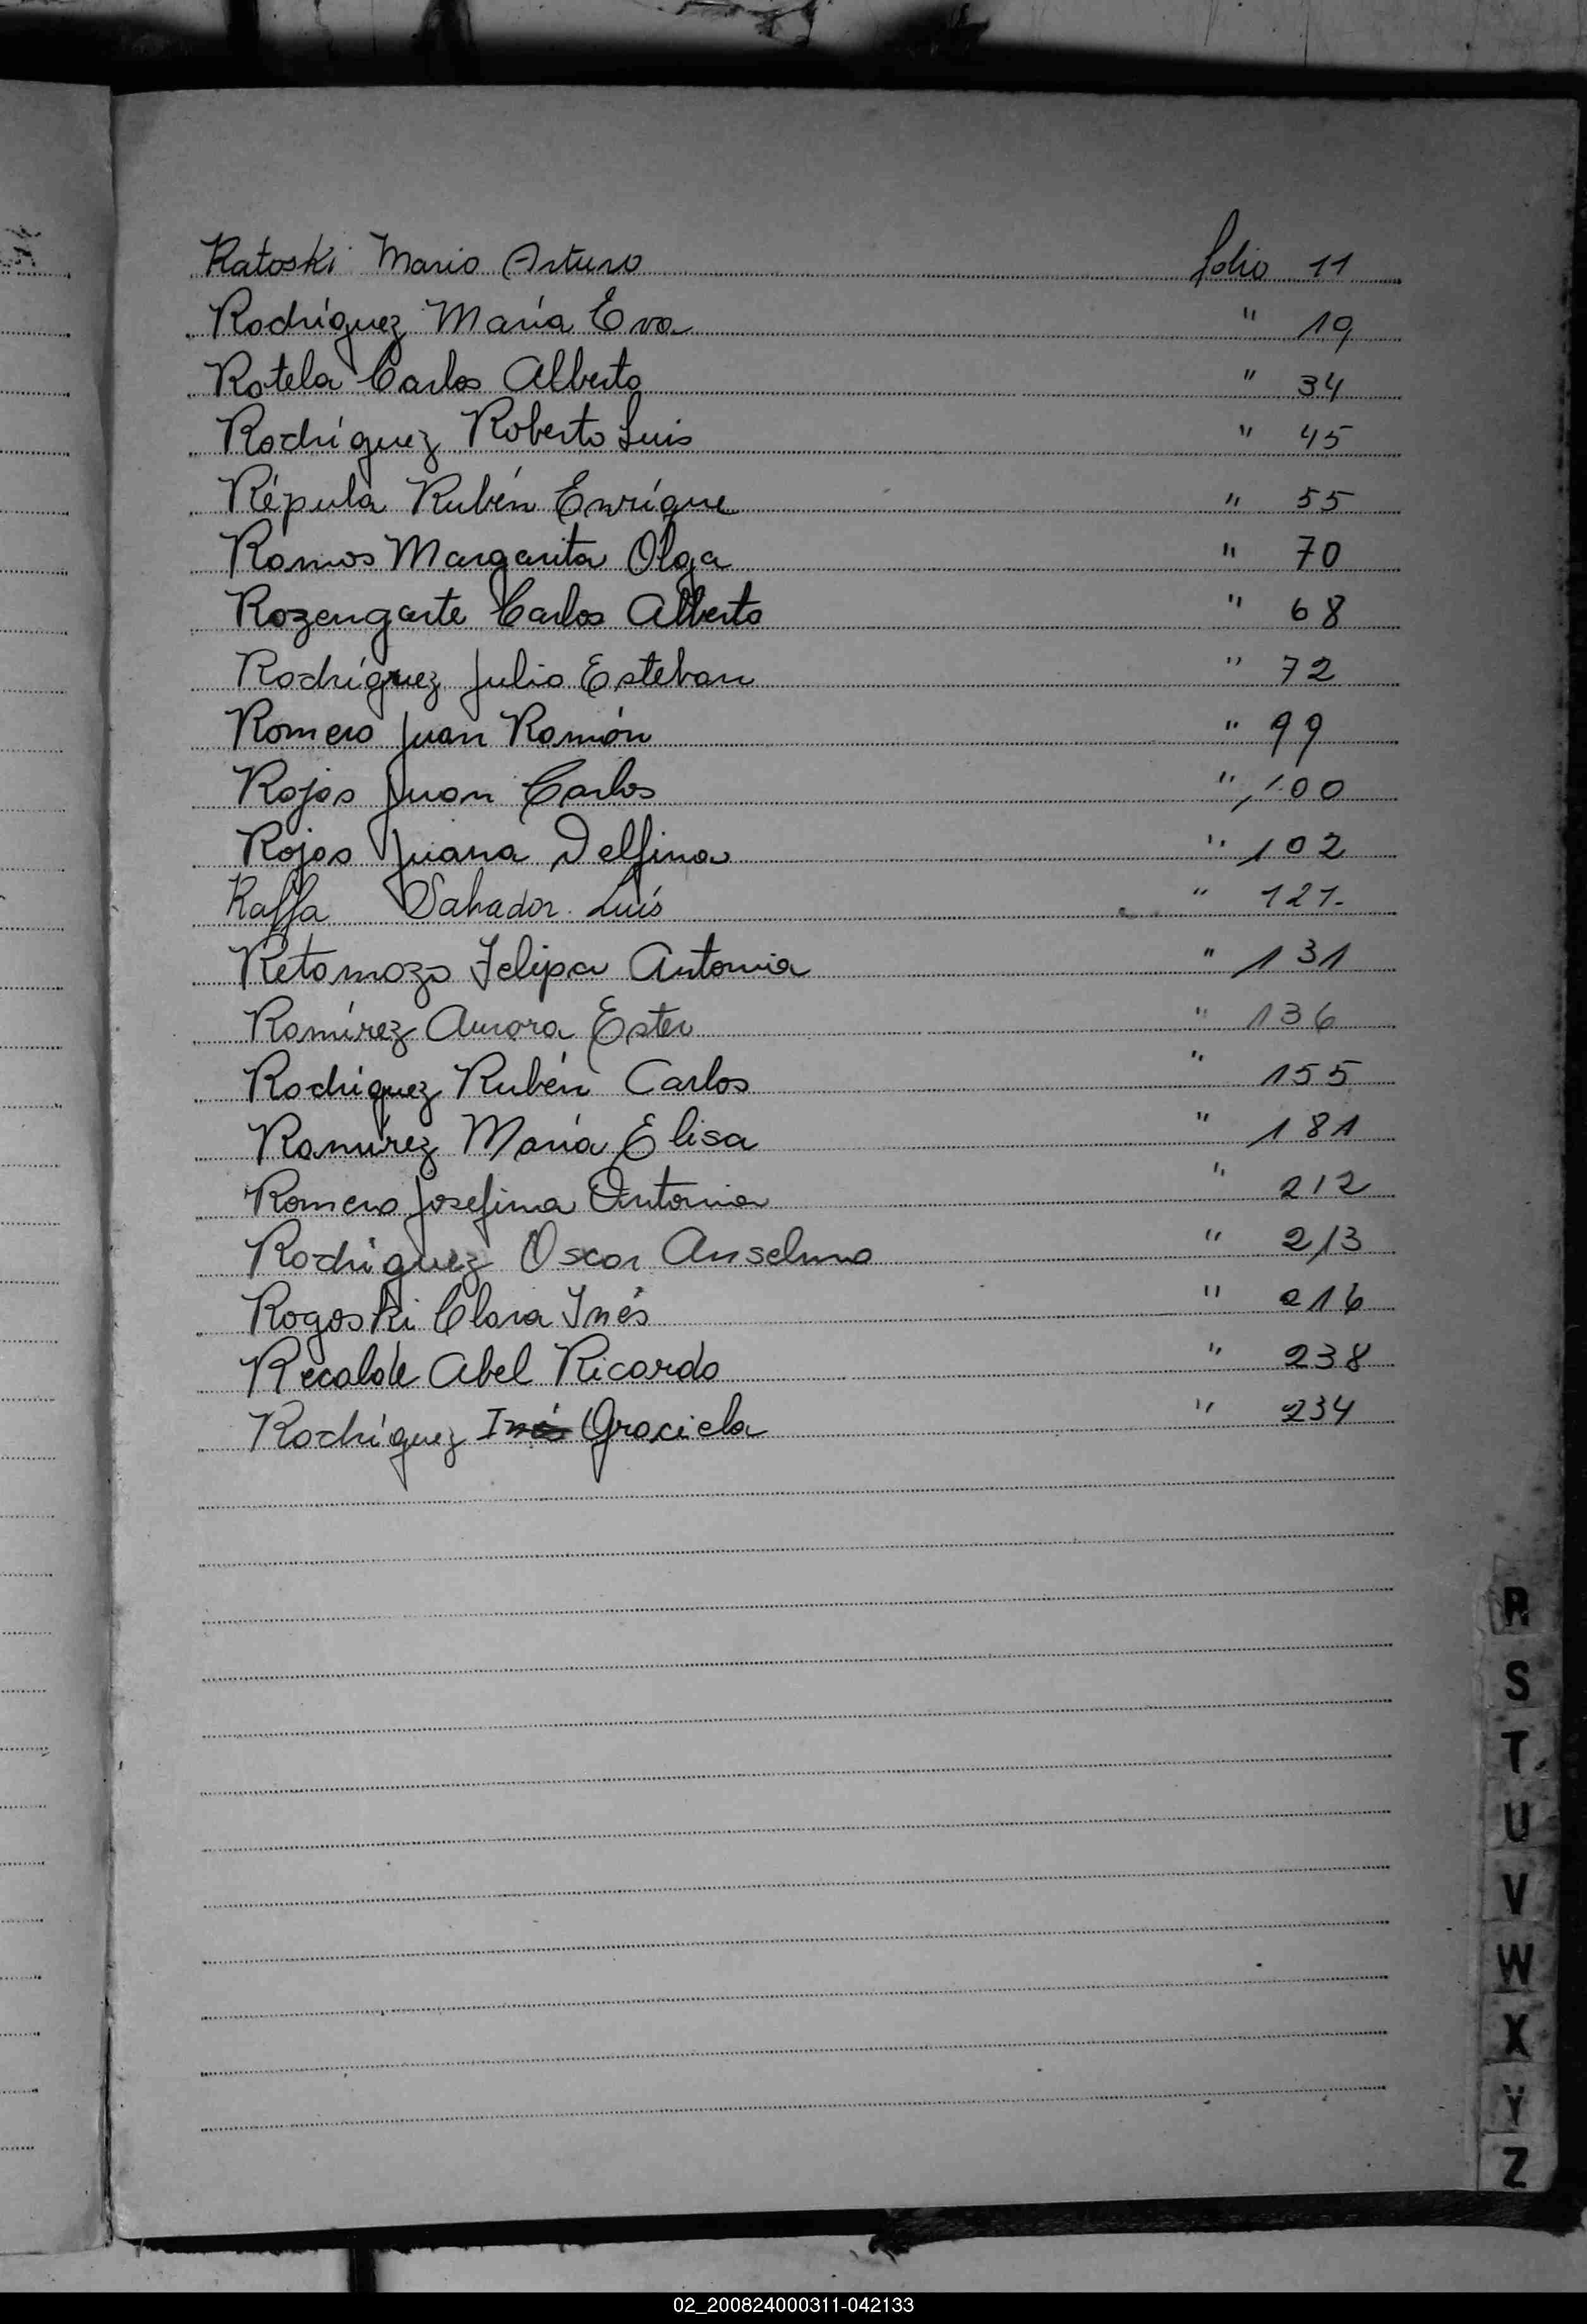 Ratoski Mario Arturo folio 11
Rodríguez María Eva " 19
Rotela Carlos Alberto " 34
Rodríguez Roberto Luis " 45
Répula Rubén Enrique " 55
Ramos Margarita Olga " 70
Rozengarte Carlos Alberto " 68
Rodríguez Julio Esteban " 72
Romero Juan Ramón " 99
Rojas Juan Carlos " 100
Rojas Juana Delfina " 102
Raffa Salvador Luis " 121-
Retamozo Felipa Antonia " 131
Ramírez Aurora Ester " 136
Rodríguez Rubén Carlos " 155
Ramírez María Elisa " 181
Romero Josefina Antonia " 212
Rodríguez Oscar Anselmo " 213
Rogoski Clara Inés " 216
Recalde Abel Ricardo " 238
Rodríguez Inés Graciela " 234
R
S
T
U
V
W
X
Y
Z
02_200824000311-042133